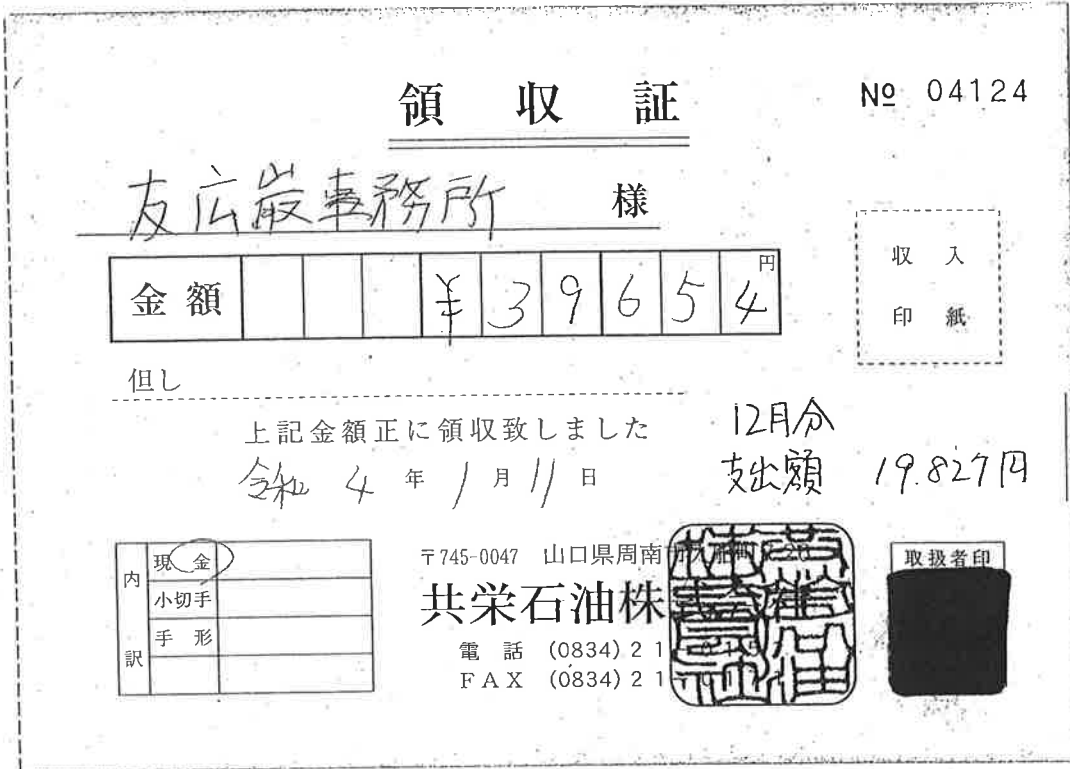 領収証
№ 04124
友広巌事務所 様
金額 ¥39654円
収入
印紙
但し
上記金額正に領収致しました
令和 4 年 1 月 11 日
12月分
支出額 19.827円
内訳
現金
小切手
手形
〒745-0047 山口県周南
共栄石油株
電話 (0834) 21
FAX (0834) 21
取扱者印